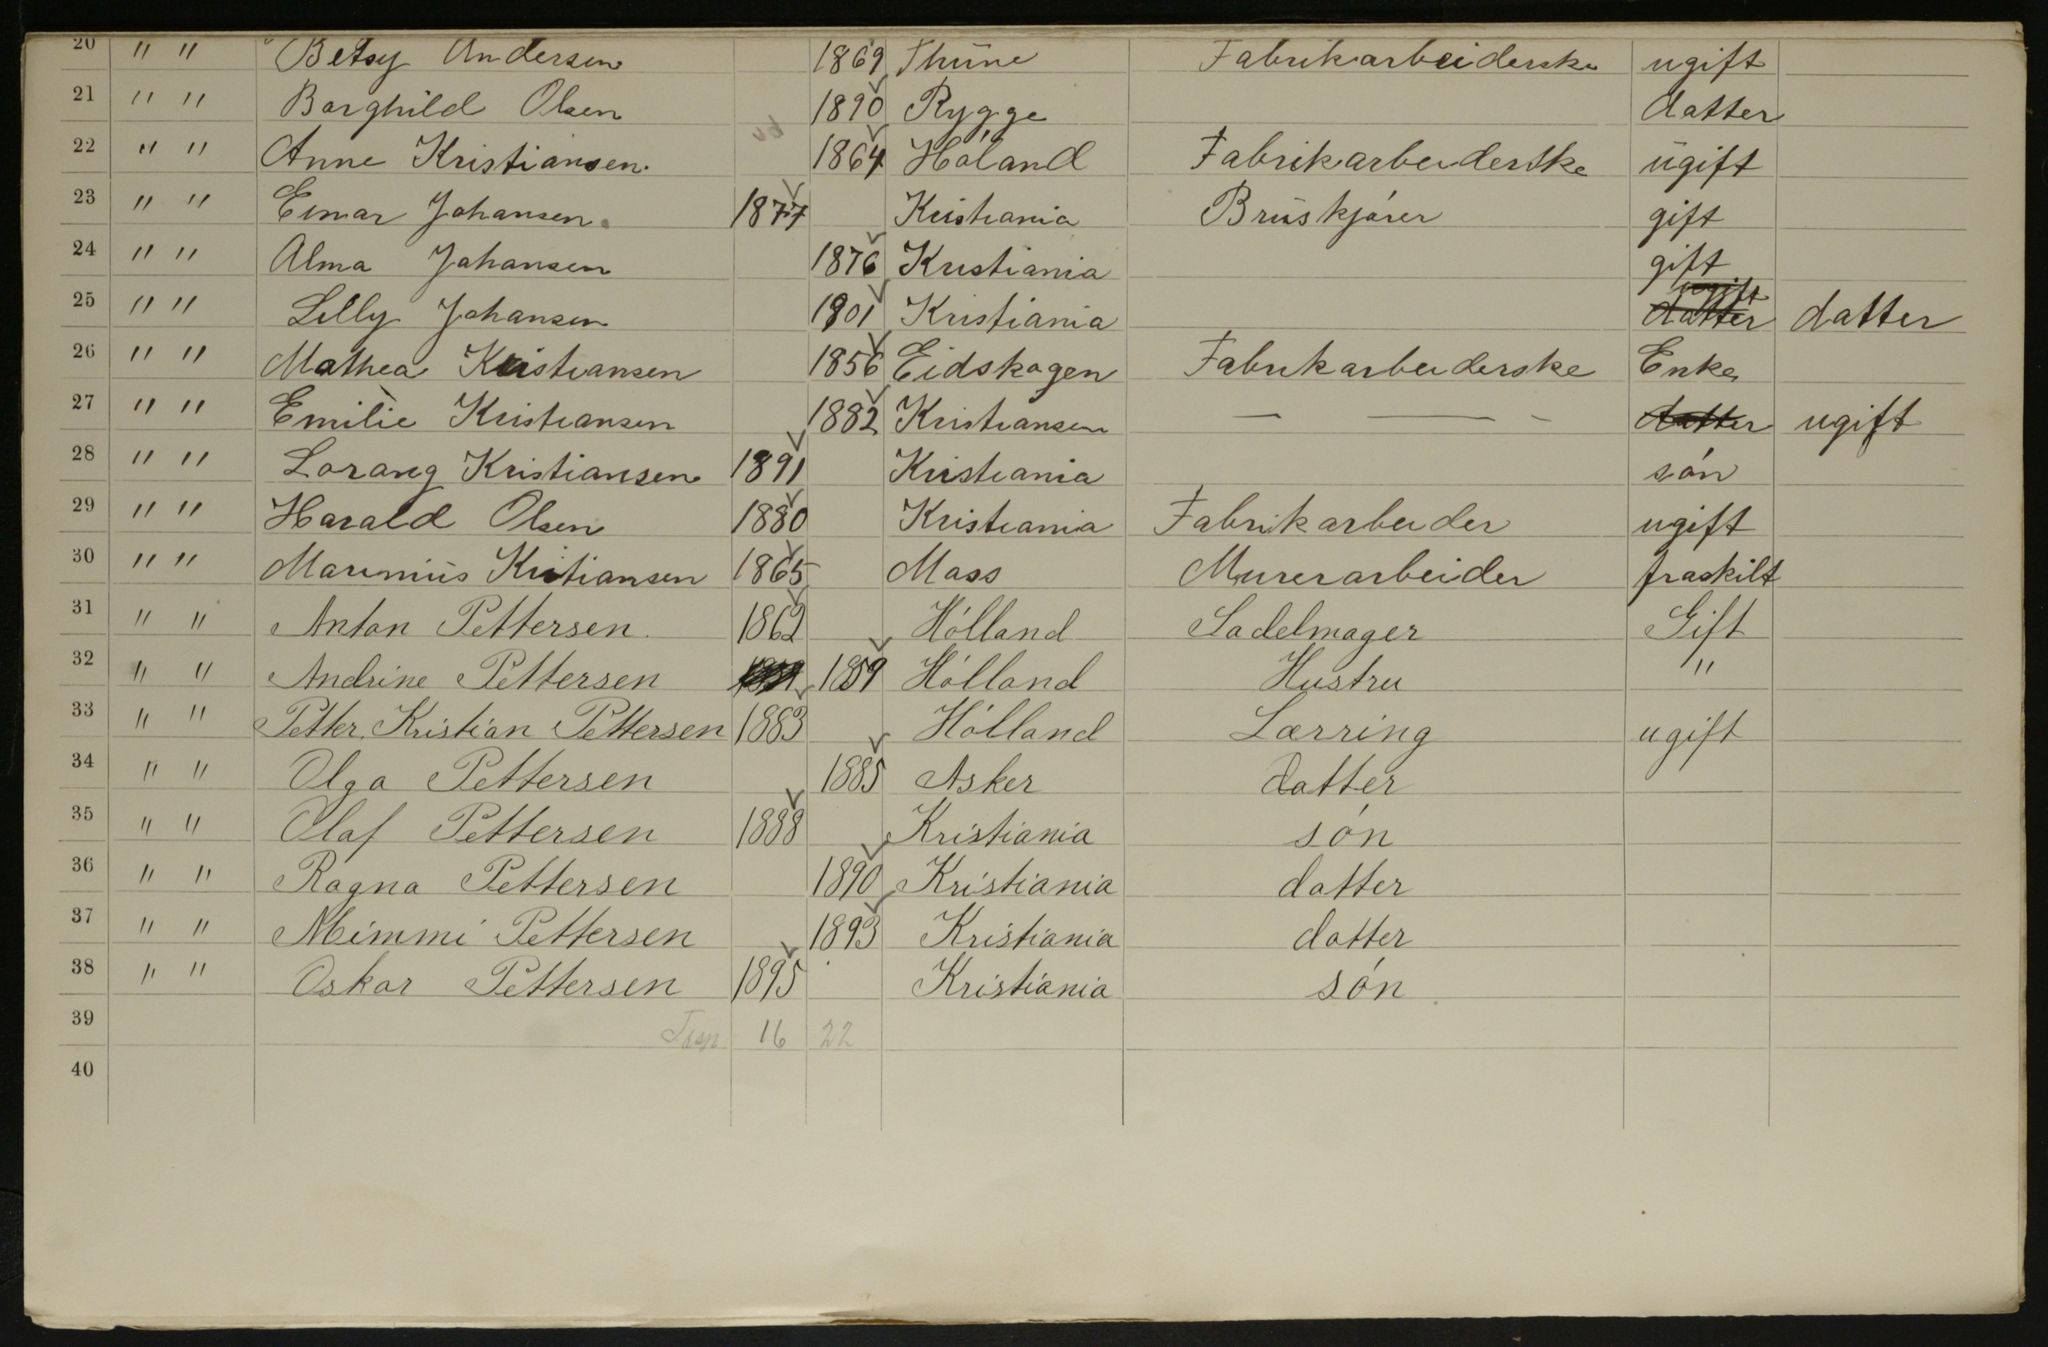 20 " " Betsy Andersen 1869 Thüne Fabrikarbeiderske ugift
21 " " Borghild Olsen 1890 Rygge datter
22 " " Anne Kristiansen. 1864 Höland Fabrikarbeiderske ügift
23 " " Einar Johansen. 1877 Kristiania Brüskjórer gift
24 " " Alma Johansen 1876 Kristiania gift
25 " " Lilly Johansen 1901 Kristiania ugift datter datter
26 " " Mathea Kristiansen 1856 Eidskogen Fabrikarbeiderske Enke
27 " " Emilie Kristiansen 1882 Kristiansen — — - datter ugift
28 " " Lorang Kristiansen 1891 Kristiania són
29 " " Harald Olsen 1880 Kristiania Fabrikarbeider ugift
30 " " Mariniüs Kristiansen 1865 Moss Murerarbeider fraskilt
31 " " Anton Pettersen. 1862 Hólland Sadelmager Gift
32 " " Andrine Pettersen 1859 Hólland Hustru "
33 " " Petter. Kristian Pettersen 1883 Hólland Lærring ugift
34 " " Olga Pettersen 1885 Asker datter
35 " " Olaf Pettersen 1888 Kristiania són
36 " " Ragna Pettersen 1890 Kristiania datter
37 " " Mimmi Pettersen 1893 Kristiania datter
38 " " Oskar Pettersen 1895 Kristiania són
39 16 22
40